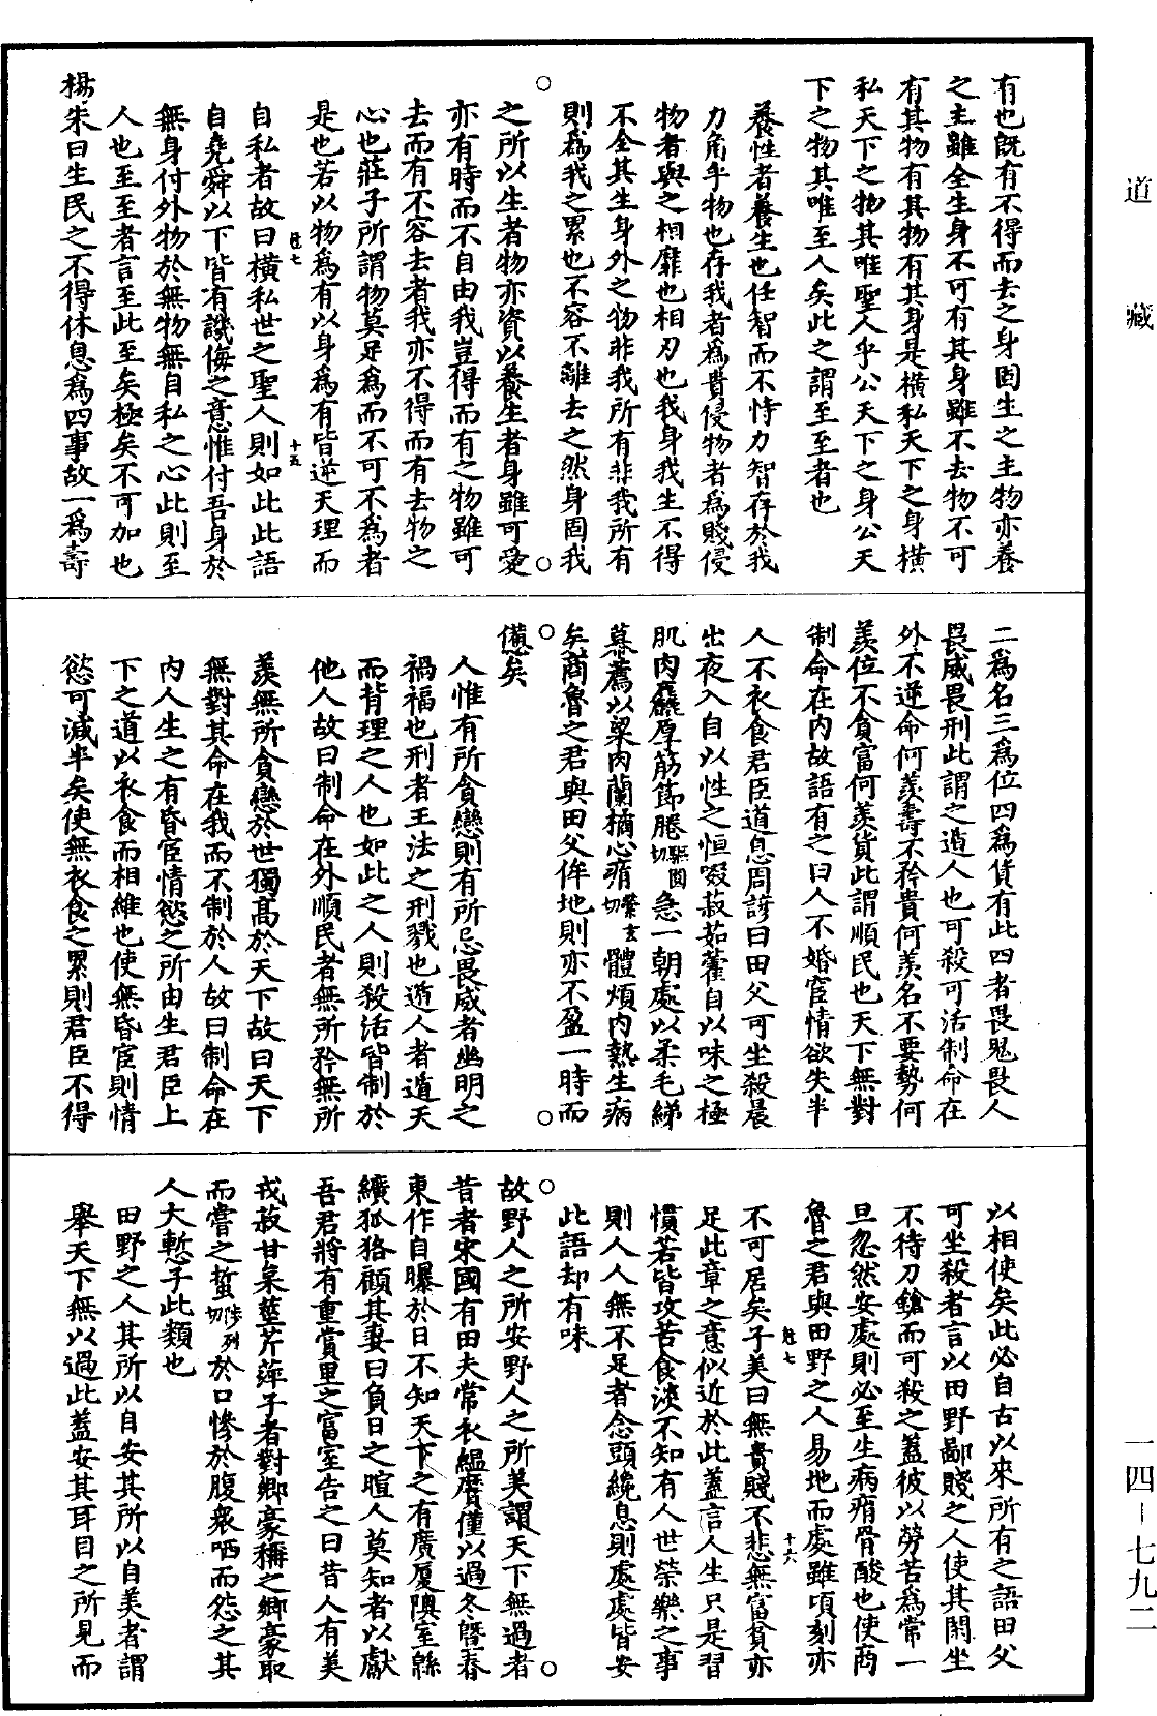 道藏
有也既有不得而去之身固生之主物亦養
之主雖全生身不可有其身雖不去物不可
有其物有其物有其身是橫私天下之身橫
私天下之物其唯聖人乎公天下之身公天
下之物其唯至人矣此之謂至至者也
養性者養生也任智而不恃力智存於我
力角乎物也存我者爲貴侵物者爲賤侵
物者與之相靡也相刃也我身我生不得
不全其生身外之物非我所有非我所有
則爲我之累也不容不離去之然身固我
之所以生者物亦資以養生者身雖可愛
亦有時而不自由我豈得而有之物雖可
去而有不容去者我亦不得而有去物之
心也莊子所謂物莫足爲而不可不爲者
是也若以物爲有以身爲有皆逆天理而
自私者故曰橫私世之聖人則如此此語
自堯舜以下皆有譏侮之意惟付吾身於
無身付外物於無物無自私之心此則至
人也至至者言至此至矣極矣不可加也
楊朱曰生民之不得休息爲四事故一爲壽
二爲名三爲位四爲貨有此四者畏鬼畏人
畏威畏刑此謂之遁人也可殺可活制命在
外不逆命何羨壽不矜貴何羨名不要勢何
羨位不貪富何羨貨此謂順民也天下無對
制命在内故語有之曰人不婚宦情欲失半
人不衣食君臣道息周諺曰田父可坐殺晨
出夜入自以性之恒啜菽茹藿自以味之極
肌肉麤厚筋節腃驅圓切急一朝處以柔毛綈
幕薦以粱肉蘭橘心痟縈玄切體煩内熱生病
矣商魯之君與田父侔地則亦不盈一時而
憊矣
人惟有所貪戀則有所忌畏威者幽明之
禍福也刑者王法之刑戮也遁人者遁天
而背理之人也如此之人則殺活皆制於
他人故曰制命在外順民者無所矜無所
羨無所貪戀於世獨高於天下故曰天下
無對其命在我而不制於人故曰制命在
内人生之有昏宦情慾之所由生君臣上
下之道以衣食而相維也使無昏宦則情
慾可減半矣使無衣食之累則君臣不得
以相使矣此必自古以來所有之語田父
可坐殺者言以田野鄙賤之人使其閑坐
不待刀鎗而可殺之蓋彼以勞苦爲常一
旦忽然安處則必至生病痟骨酸也使商
魯之君與田野之人易地而處雖頃刻亦
不可居矣子美曰無貴賤不悲無富貧亦
足此章之意似近於此蓋言人生只是習
慣若皆攻苦食淡不知有人世榮樂之事
則人人無不足者念頭纔息則處處皆安
此語却有味
故野人之所安野人之所美謂天下無過者
昔者宋國有田夫常衣縕黂僅以過冬曁春
東作自曝於日不知天下之有廣厦隩室緜
纊狐狢顧其妻曰負日之暄人莫知者以獻
吾君將有重賞里之富室告之曰昔人有美
戎菽甘枲莖芹萍子者對鄉豪稱之鄉豪取
而嘗之蜇陟列切於口慘於腹衆哂而怨之其
人大慙子此類也
田野之人其所以自安其所以自美者謂
舉天下無以過此蓋安其耳目之所見而
一四-七九二